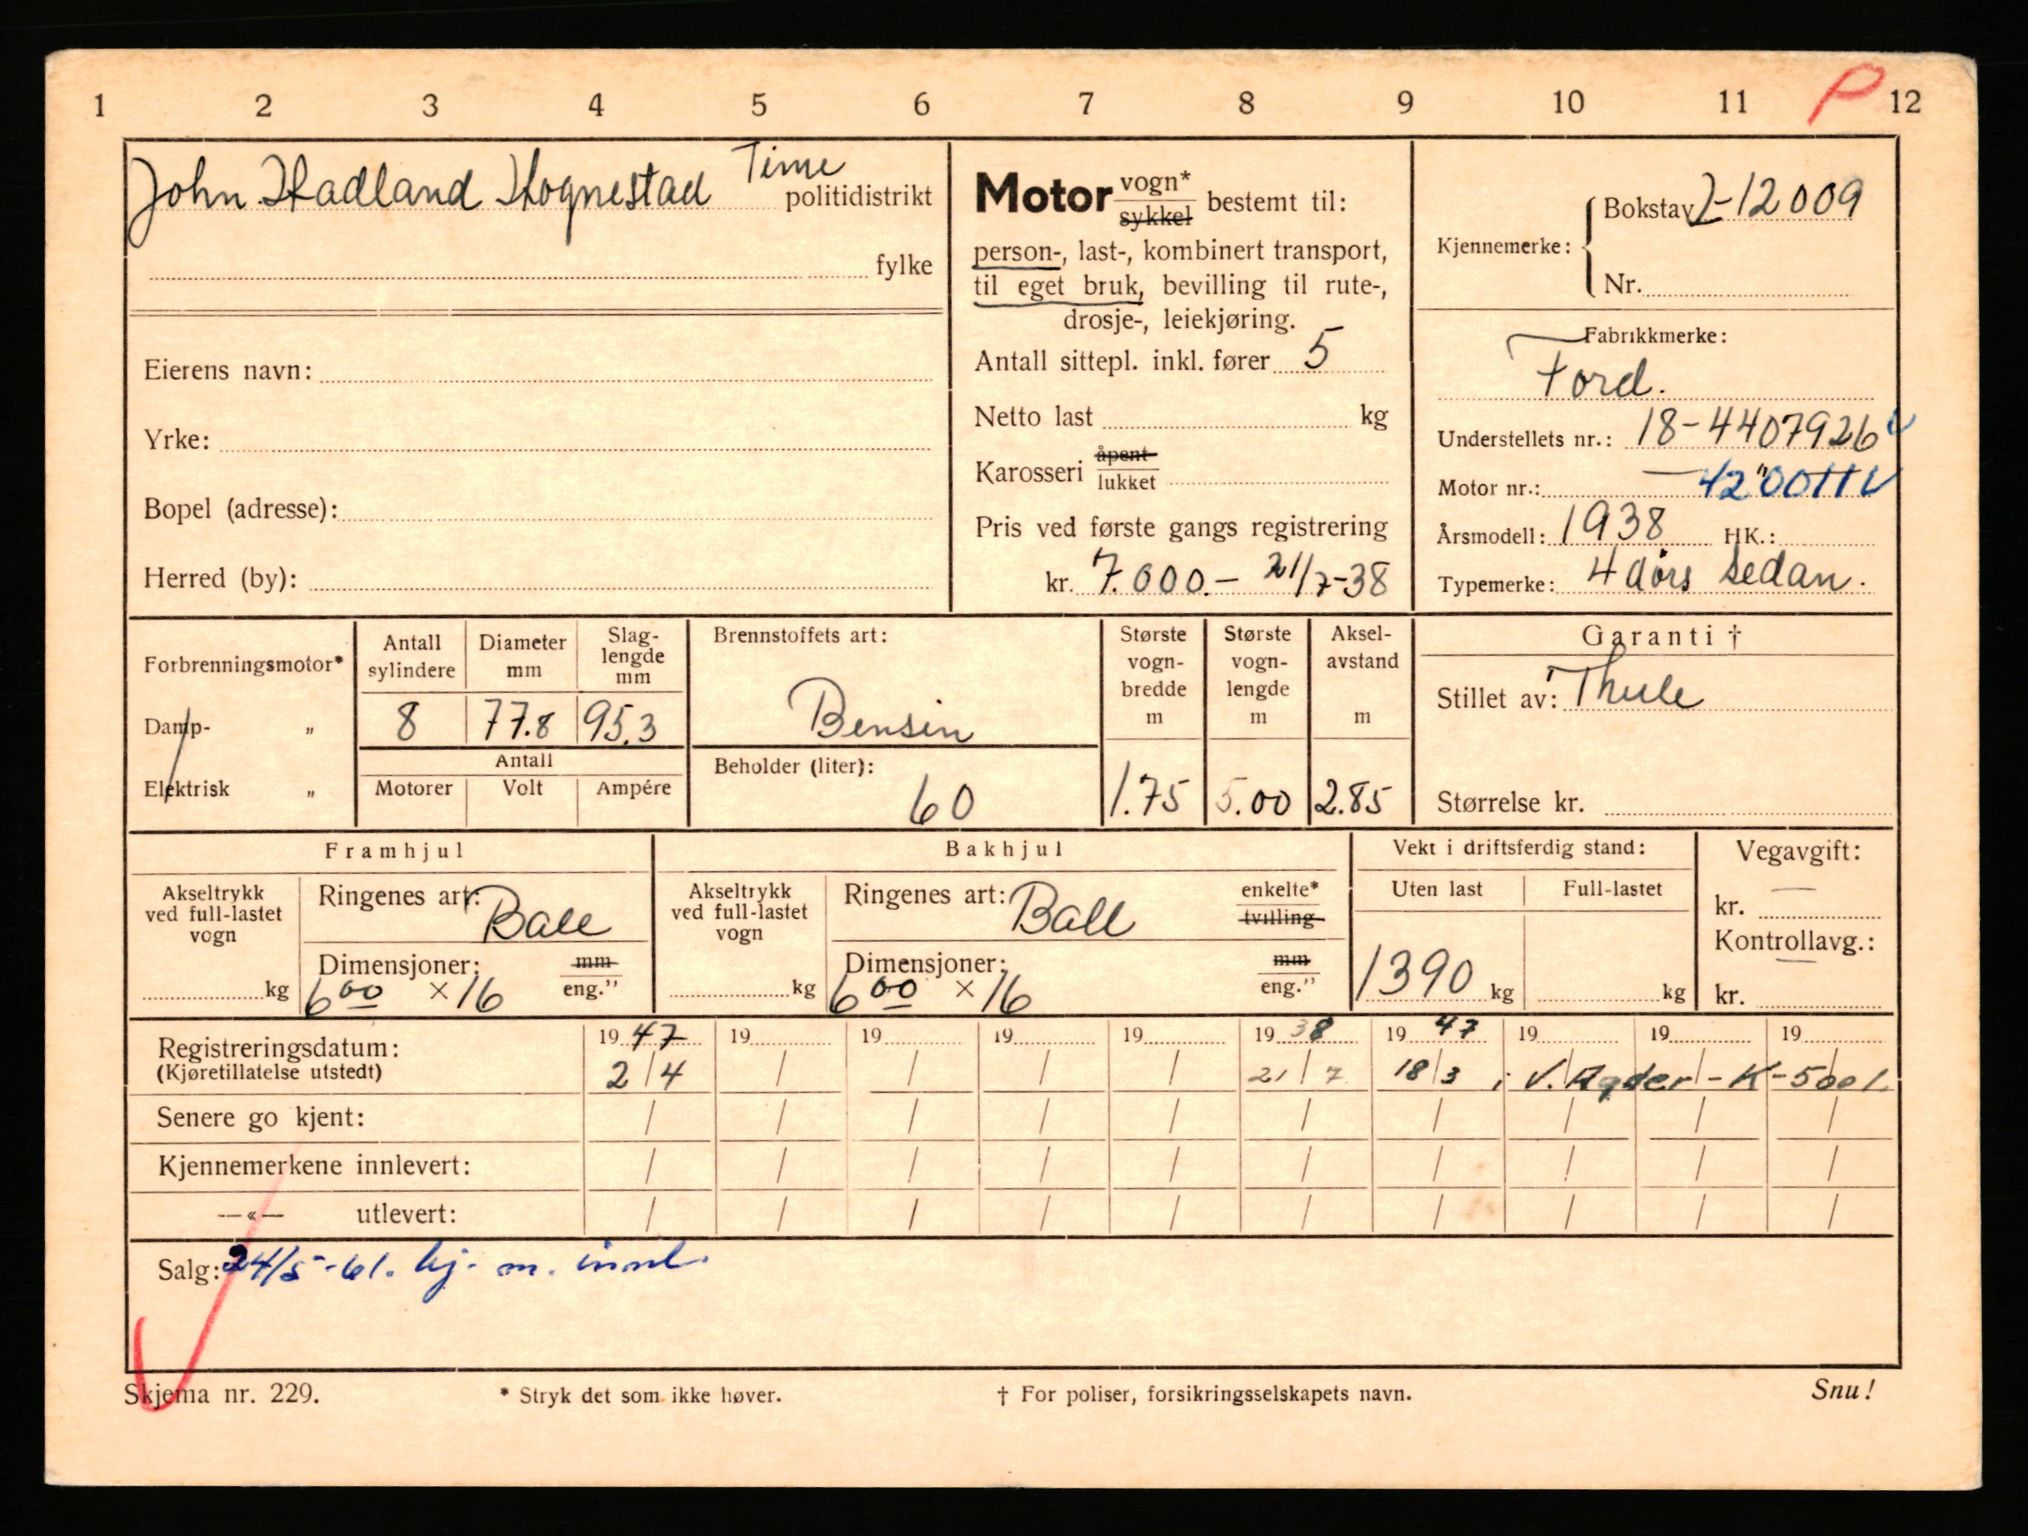 1 2 3 4 5 6 7 8 9 10 11 P 12
John Hadland Hognestad Time politidistrikt
fylke
Eierens navn:
Yrke:
Bopel (adresse):
Herred (by):
Motor vogn* sykkel bestemt til:
person-, last-, kombinert transport,
til eget bruk, bevilling til rute-,
drosje-, leiekjøring.
Antall sittepl. inkl. fører 5
Netto last kg
Karosseri åpent lukket
Pris ved første gangs registrering
kr. 7.000.- 21/7-38
Kjennemerke: Bokstav -12009
Nr.
Fabrikkmerke:
Ford.
Understellets nr.: 18-4407926
Motor nr.:
Årsmodell: 1938 HK.:
Typemerke: 4 dørs sedan.
Forbrenningsmotor*
Damp- „
Elektrisk „
Antall sylindere Diameter mm Slag-lengde mm
8 77.8 95.3
Antall
Motorer Volt Ampére
Brennstoffets art:
Bensin
Beholder (liter):
60
Største vogn-bredde m Største vogn-lengde m Aksel-avstand m
1.75 5.00 2.85
Garanti †
Stillet av: Thule
Størrelse kr.
Framhjul
Akseltrykk ved full-lastet vogn
kg
Ringenes art: Ball
Dimensjoner: mm eng."
6 00 × 16
Bakhjul
Akseltrykk ved full-lastet vogn
kg
Ringenes art: Ball enkelte* tvilling
Dimensjoner: mm eng."
6 00 × 16
Vekt i driftsferdig stand:
Uten last Full-lastet
1390 kg kg
Vegavgift:
kr.
Kontrollavg.:
kr.
Registreringsdatum: 19 47 19 19 19 19 19 38 19 47 19 19 19
(Kjøretillatelse utstedt) 2/4 / / / / 21/7 18/3 i V. Agder - K-5001.
Senere go kjent: / / / / / / / / / /
Kjennemerkene innlevert: / / / / / / / / / /
—«— utlevert: / / / / / / / / / /
Salg: 24/5-61. kj. m. innl.
Skjema nr. 229. * Stryk det som ikke høver. † For poliser, forsikringsselskapets navn. Snu!